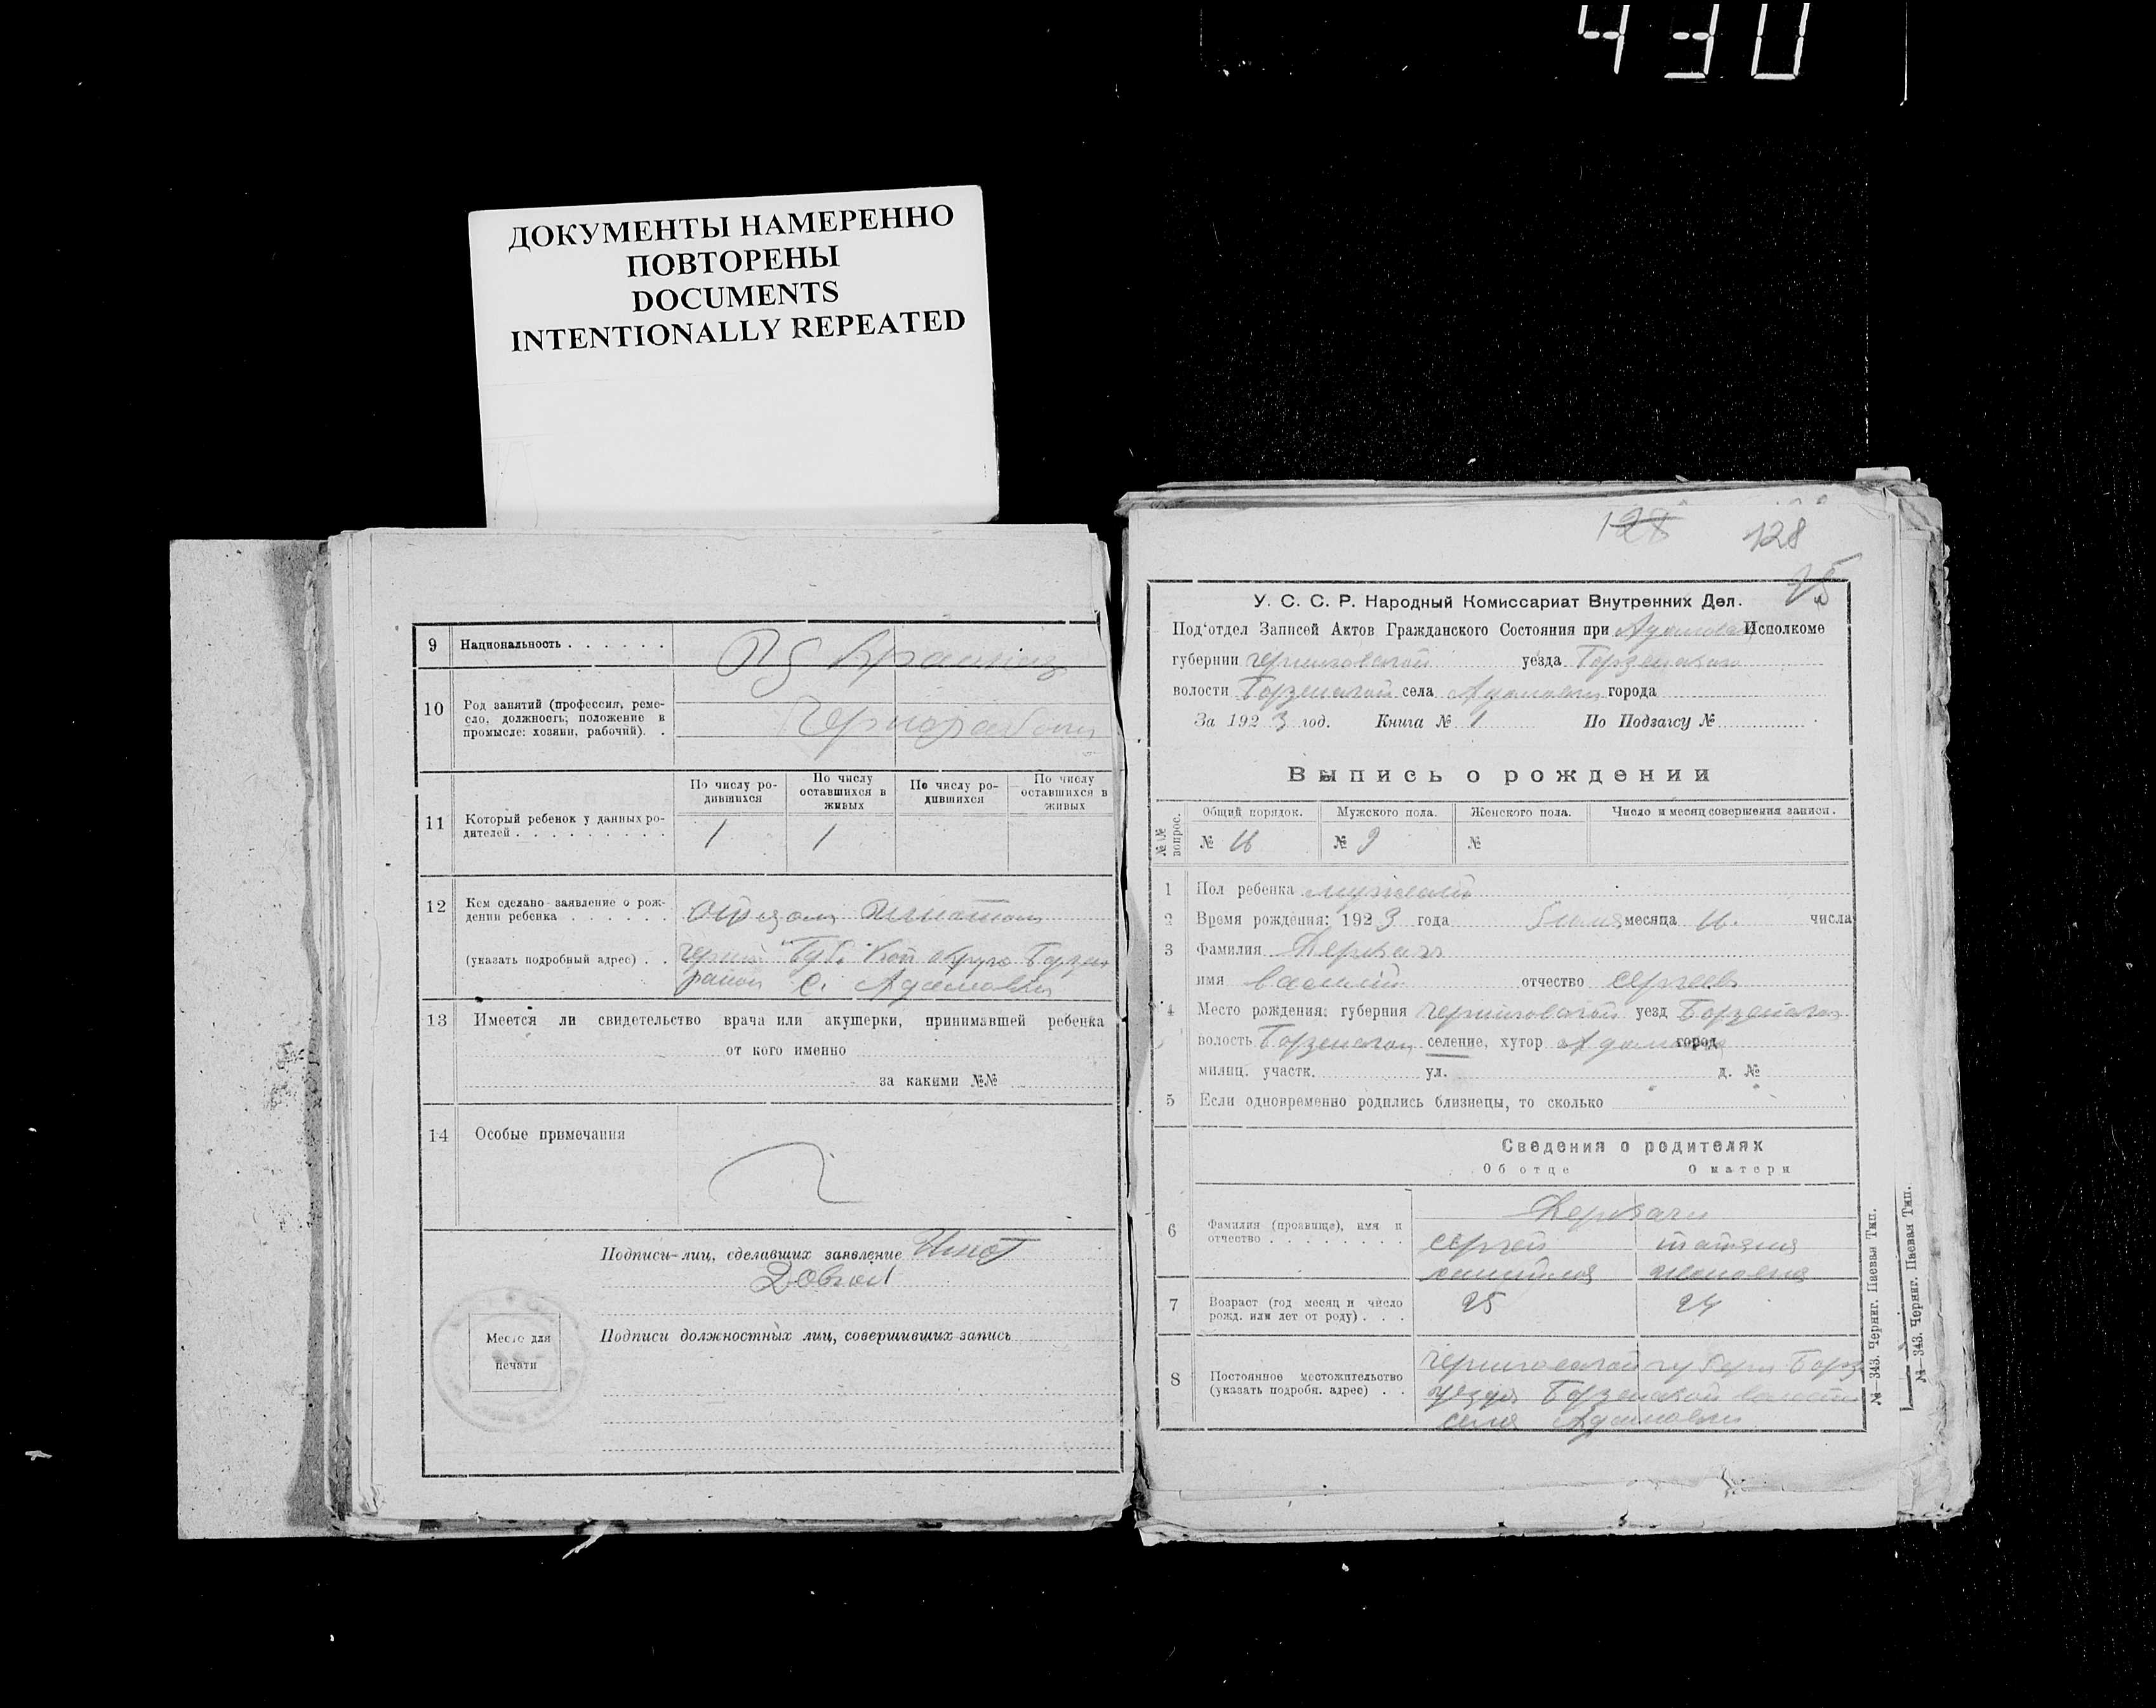 430
ДОКУМЕНТЫ НАМЕРЕННО
ПОВТОРЕНЫ
DOCUMENTS
INTENTIONALLY REPEATED
9 Национальность
10 Род занятий (профессия, реме-
сло, должность, положение в
промысле: хозяин, рабочий).
По числу ро-
дившихся
По числу
оставшихся в
живых
По числу ро-
дившихся
По числу
оставшихся в
живых
11 Который ребенок у данных ро-
дителей 1 1
12 Кем сделано заявление о рож-
дении ребенка
(указать подробный адрес)
район с. Адамовки
13 Имеется ли свидетельство врача или акушерки, принимавшей ребенка
от кого именно
за какими №№
14 Особые примечания
Подписи лиц, сделавших заявление
Подписи должностных лиц, совершивших запись
Место для
печати
128 128
У. С. С. Р. Народный Комиссариат Внутренних Дел.
Под'отдел Записей Актов Гражданского Состояния при Исполкоме
губернии Черниговской уезда Борзенского
волости Борзенской села Адамовки города
За 1923 год. Книга № 1 По Подзагсу №
Выпись о рождении
№№ вопрос.
Общий порядок. Мужского пола. Женского пола. Число и месяц совершения записи.
№ № 9 №
1 Пол ребенка мужской
2 Время рождения: 1923 года месяца числа
3 Фамилия Деркач
имя Василий отчество Сергеев
4 Место рождения: губерния Черниговской уезд Борзенского
волость Борзенской селение, хутор город
милиц. участк. ул. д. №
5 Если одновременно родились близнецы, то сколько
Сведения о родителях
Об отце О матери
6 Фамилия (прозвище), имя и
отчество
Деркачи
Сергей Татьяна
7 Возраст (год месяц и число
рожд. или лет от роду) 25 24
8 Постоянное местожительство
(указать подробн. адрес)
Черниговской губерн Борз
уезда Борзенской волости
села Адамовки
№—343. Черниг. Паевая Тип.
№—343. Черниг. Паевая Тип.